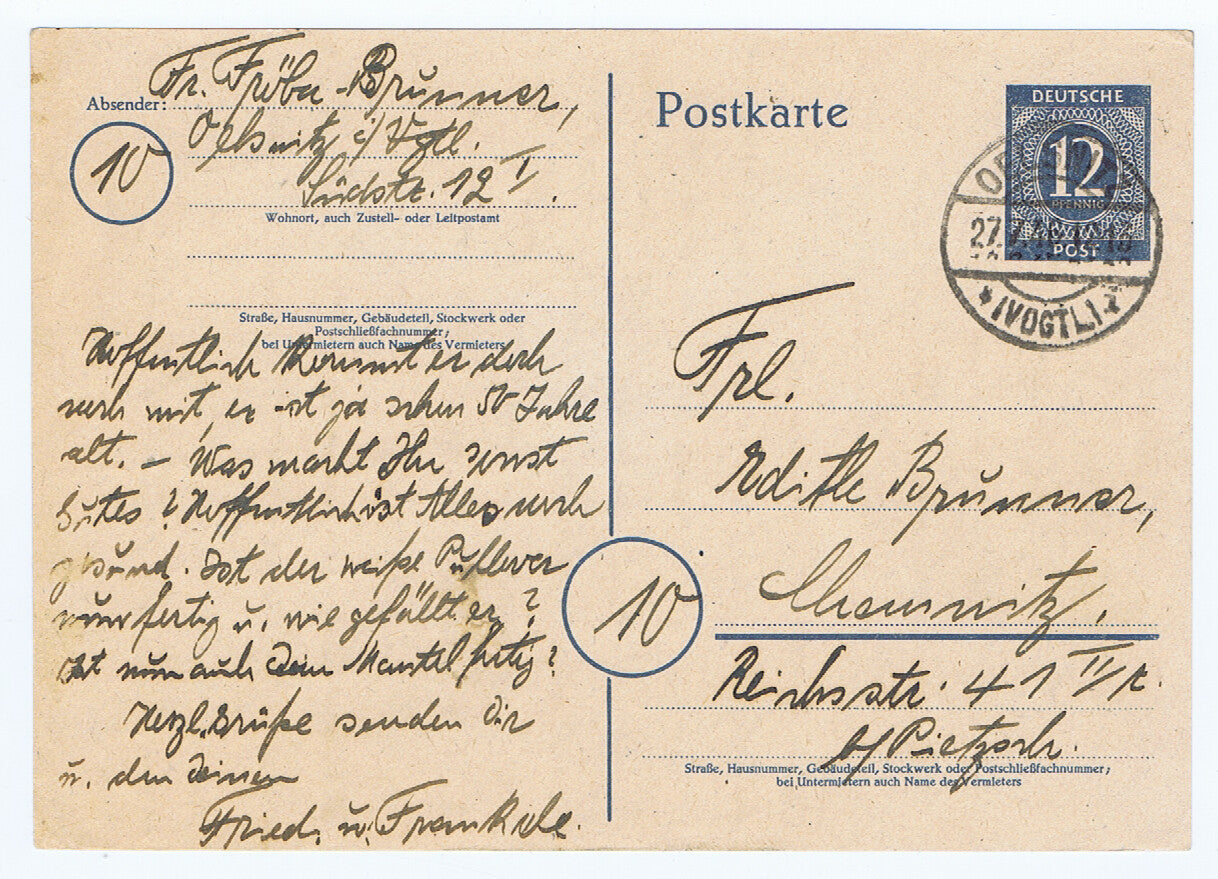 Fr. Fröba-Brunner,
Absender:
Oelsnitz i/Vgtl.
10
Südstr. 12 I.
Wohnort, auch Zustell- oder Leitpostamt
Straße, Hausnummer, Gebäudeteil, Stockwerk oder
Postschließfachnummer;
bei Untermietern auch Name des Vermieters
Hoffentlich kommt er doch
noch mit, er ist ja schon 50 Jahre
alt. – Was macht Ihr sonst
Gutes? Hoffentlich ist Alles noch
gesund. Ist der weiße Pullover
nun fertig u. wie gefällt er?
Ist nun auch Dein Mantel fertig?
Herzl. Grüße senden Dir
u. den Deinen
Fried. u.
Postkarte
DEUTSCHE
12
PFENNIG
POST
27.
* (VOGTL.)
Frl.
Edithe Brunner,
Chemnitz,
10
Reichsstr. 41 II/r.
b/Pietzsch.
Straße, Hausnummer, Gebäudeteil, Stockwerk oder Postschließfachnummer;
bei Untermietern auch Name des Vermieters